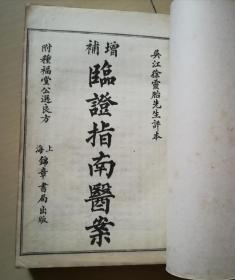 吳江徐靈胎先生評本
增補
臨證指南醫案
附種福堂公選良方
上海錦章書局出版